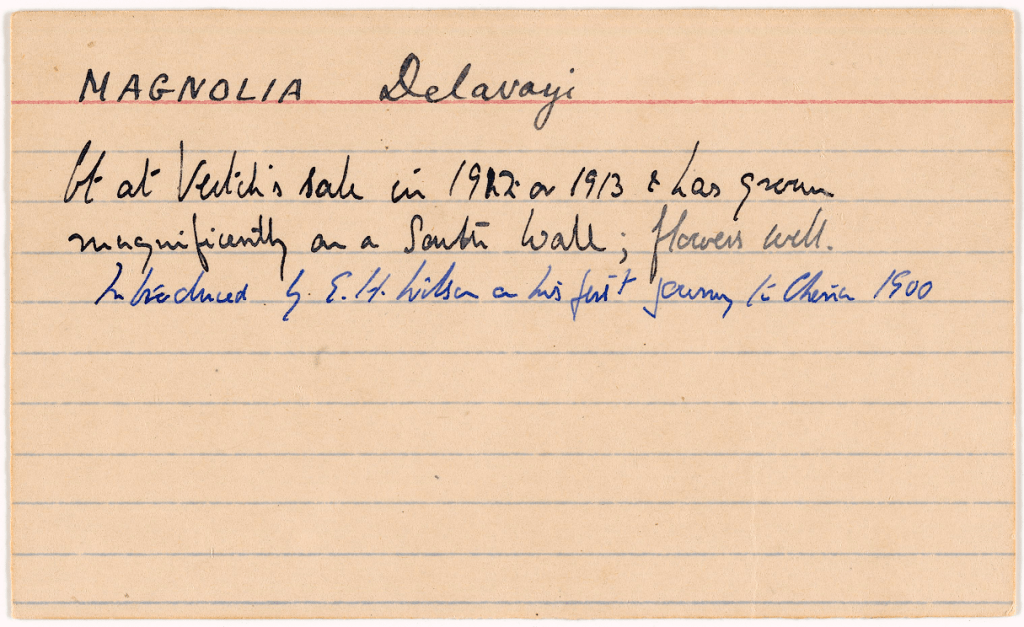 MAGNOLIA Delavayi
bt at Veitch's sale in 1912 or 1913 & has grown
magnificently on a South Wall; flowers well.
Introduced by E.H. Wilson on his first journey to China 1900